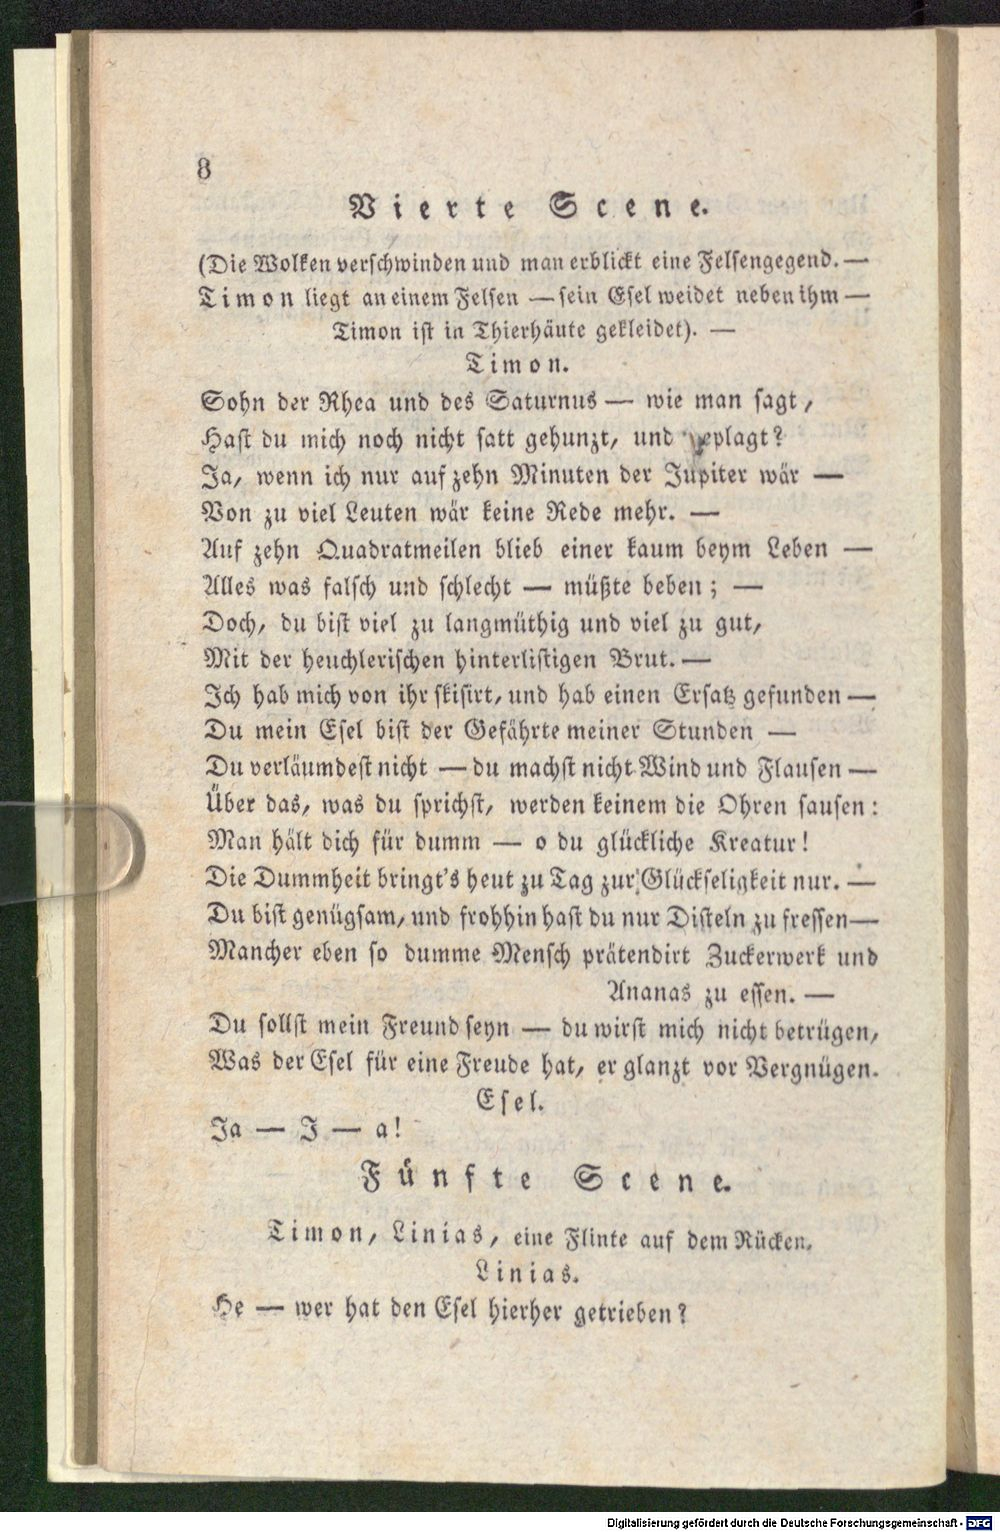 8
Vierte Scene.
(Die Wolken verschwinden und man erblickt eine Felsengegend. —
Timon liegt an einem Felsen — sein Esel weidet neben ihm —
Timon ist in Thierhäute gekleidet). —
Timon.
Sohn der Rhea und des Saturnus — wie man sagt,
Hast du mich noch nicht satt gehunzt, und geplagt?
Ja, wenn ich nur auf zehn Minuten der Jupiter wär —
Von zu viel Leuten wär keine Rede mehr. —
Auf zehn Quadratmeilen blieb einer kaum beym Leben —
Alles was falsch und schlecht — müßte beben; —
Doch, du bist viel zu langmüthig und viel zu gut,
Mit der heuchlerischen hinterlistigen Brut. —
Ich hab mich von ihr skisirt, und hab einen Ersatz gefunden —
Du mein Esel bist der Gefährte meiner Stunden —
Du verläumdest nicht — du machst nicht Wind und Flausen —
Über das, was du sprichst, werden keinem die Ohren sausen:
Man hält dich für dumm — o du glückliche Kreatur!
Die Dummheit bringt's heut zu Tag zur Glückseligkeit nur. —
Du bist genügsam, und frohhin hast du nur Disteln zu fressen—
Mancher eben so dumme Mensch prätendirt Zuckerwerk und
Ananas zu essen. —
Du sollst mein Freund seyn — du wirst mich nicht betrügen,
Was der Esel für eine Freude hat, er glanzt vor Vergnügen.
Esel.
Ja — J — a!
Fünfte Scene.
Timon, Linias, eine Flinte auf dem Rücken.
Linias.
He — wer hat den Esel hierher getrieben?
Digitalisierung gefördert durch die Deutsche Forschungsgemeinschaft - DFG